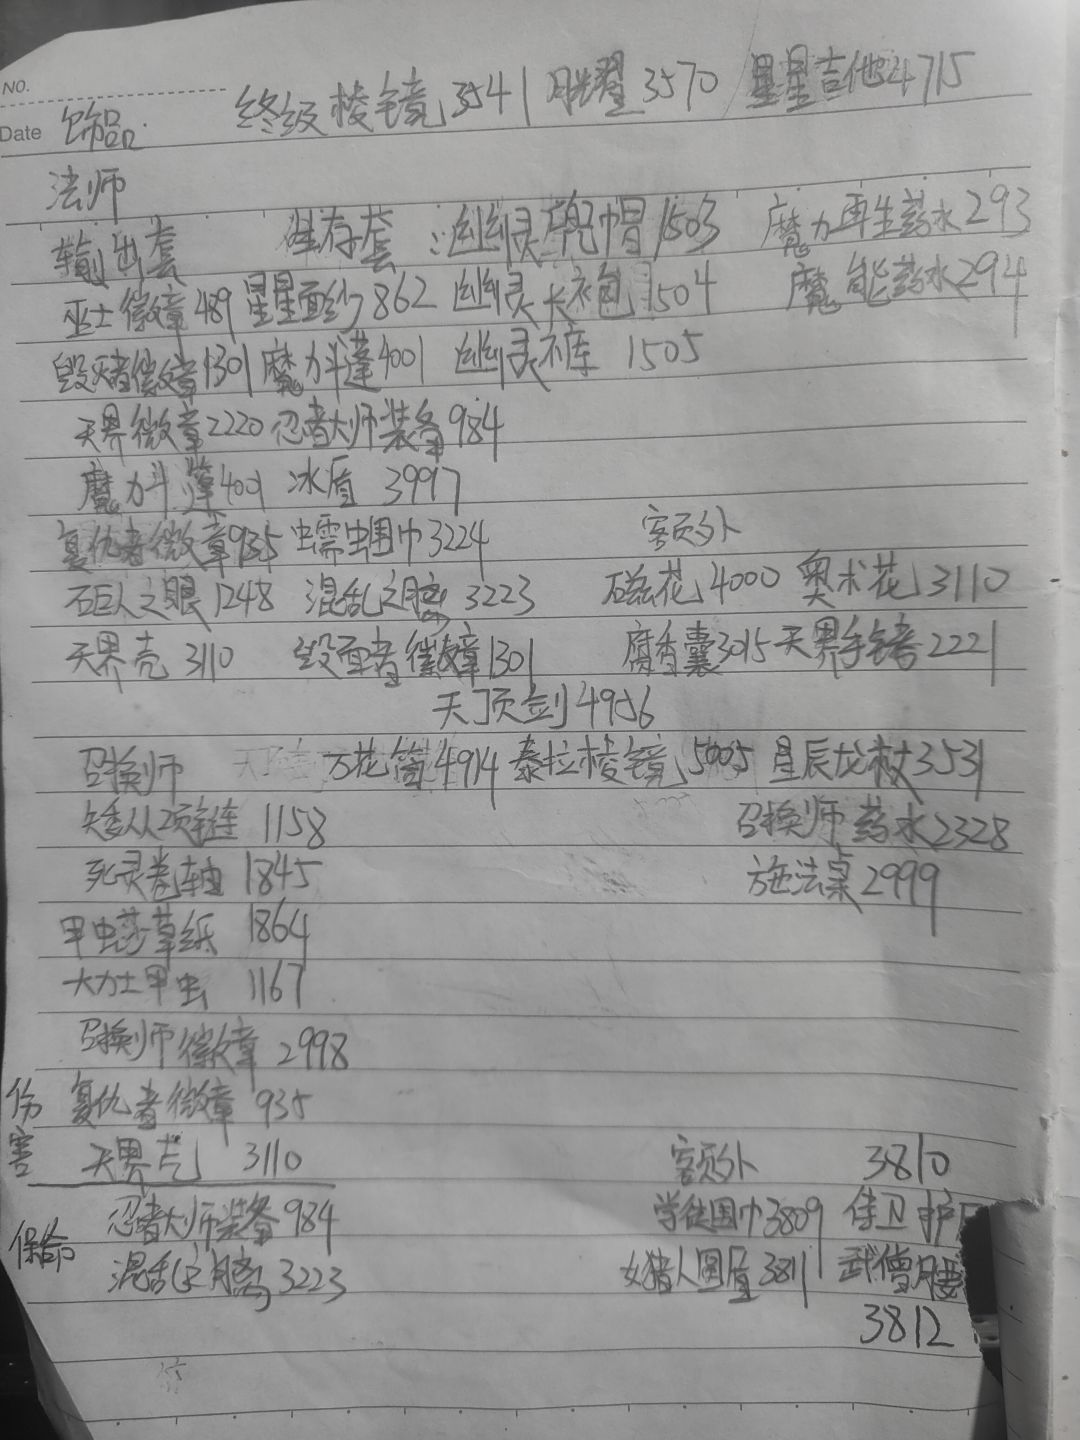 NO.
终级棱镜3541 月曜3570 星星吉他4715
Date 饰品
法师
输出套 生存套 幽灵兜帽1503 魔力再生药水293
巫士徽章489 星星面纱862 幽灵长袍1504 魔能药水294
毁灭者徽章1301 魔力斗蓬4001 幽灵裤 1505
天界徽章2220 忍者大师装备984
魔力斗蓬4001 冰盾 3997
复仇者徽章935 蠕虫围巾3224 额外
石巨人之眼1248 混乱之脑 3223 磁花4000 奥术花3110
天界壳 3110 毁面者徽章1301 腐香囊3015 天界手铐2221
天顶剑4956
召换师 万花筒4914 泰拉棱镜5005 星辰龙杖3531
矮人项链 1158 召换师药水2328
死灵卷轴 1845 施法桌2999
甲虫莎草纸 1864
大力士甲虫 1167
召换师徽章 2998
伤害 复仇者徽章 935
天界壳 3110 额外 3810
忍者大师装备984 学徒围巾3809 侍卫护
保命 混乱之脑3223 女猎人圆盾3811 武僧腰
3812